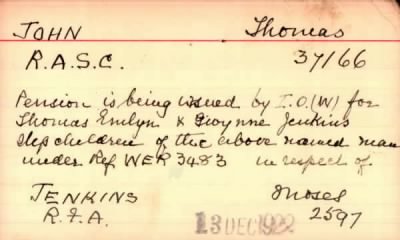 JOHN Thomas
R.A.S.C. 37/66
Pension is being issued by I.O.(W) for
Thomas Emlyn & Gwynne Jenkins
step children of the above named man
under Ref WER 3483 in respect of
JENKINS Moses
R.F.A. 2597
13 DEC 1922